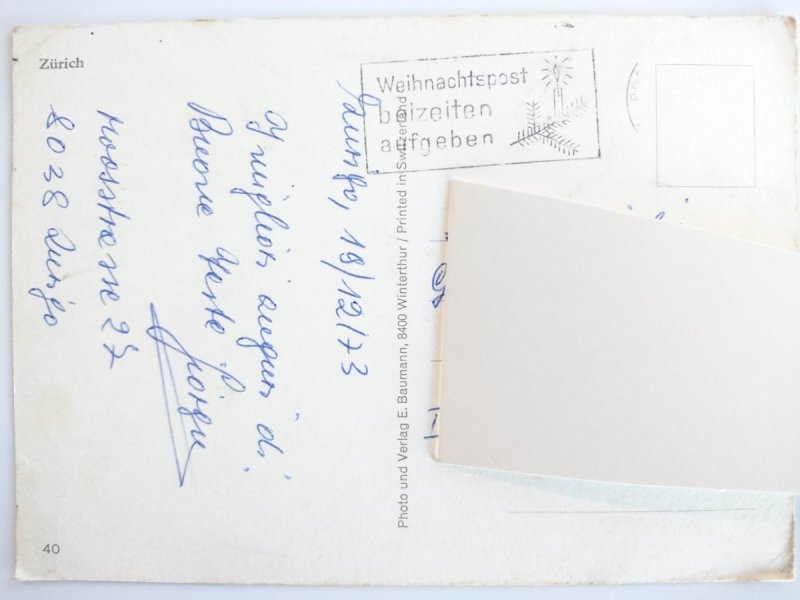 Zürich
Weihnachtspost
beizeiten
aufgeben
Zurigo, 19/12/73
I migliori auguri di
Buone Feste!
Moosstrasse 27
8038 Zurigo
Photo und Verlag E. Baumann, 8400 Winterthur / Printed in Switzerland
40